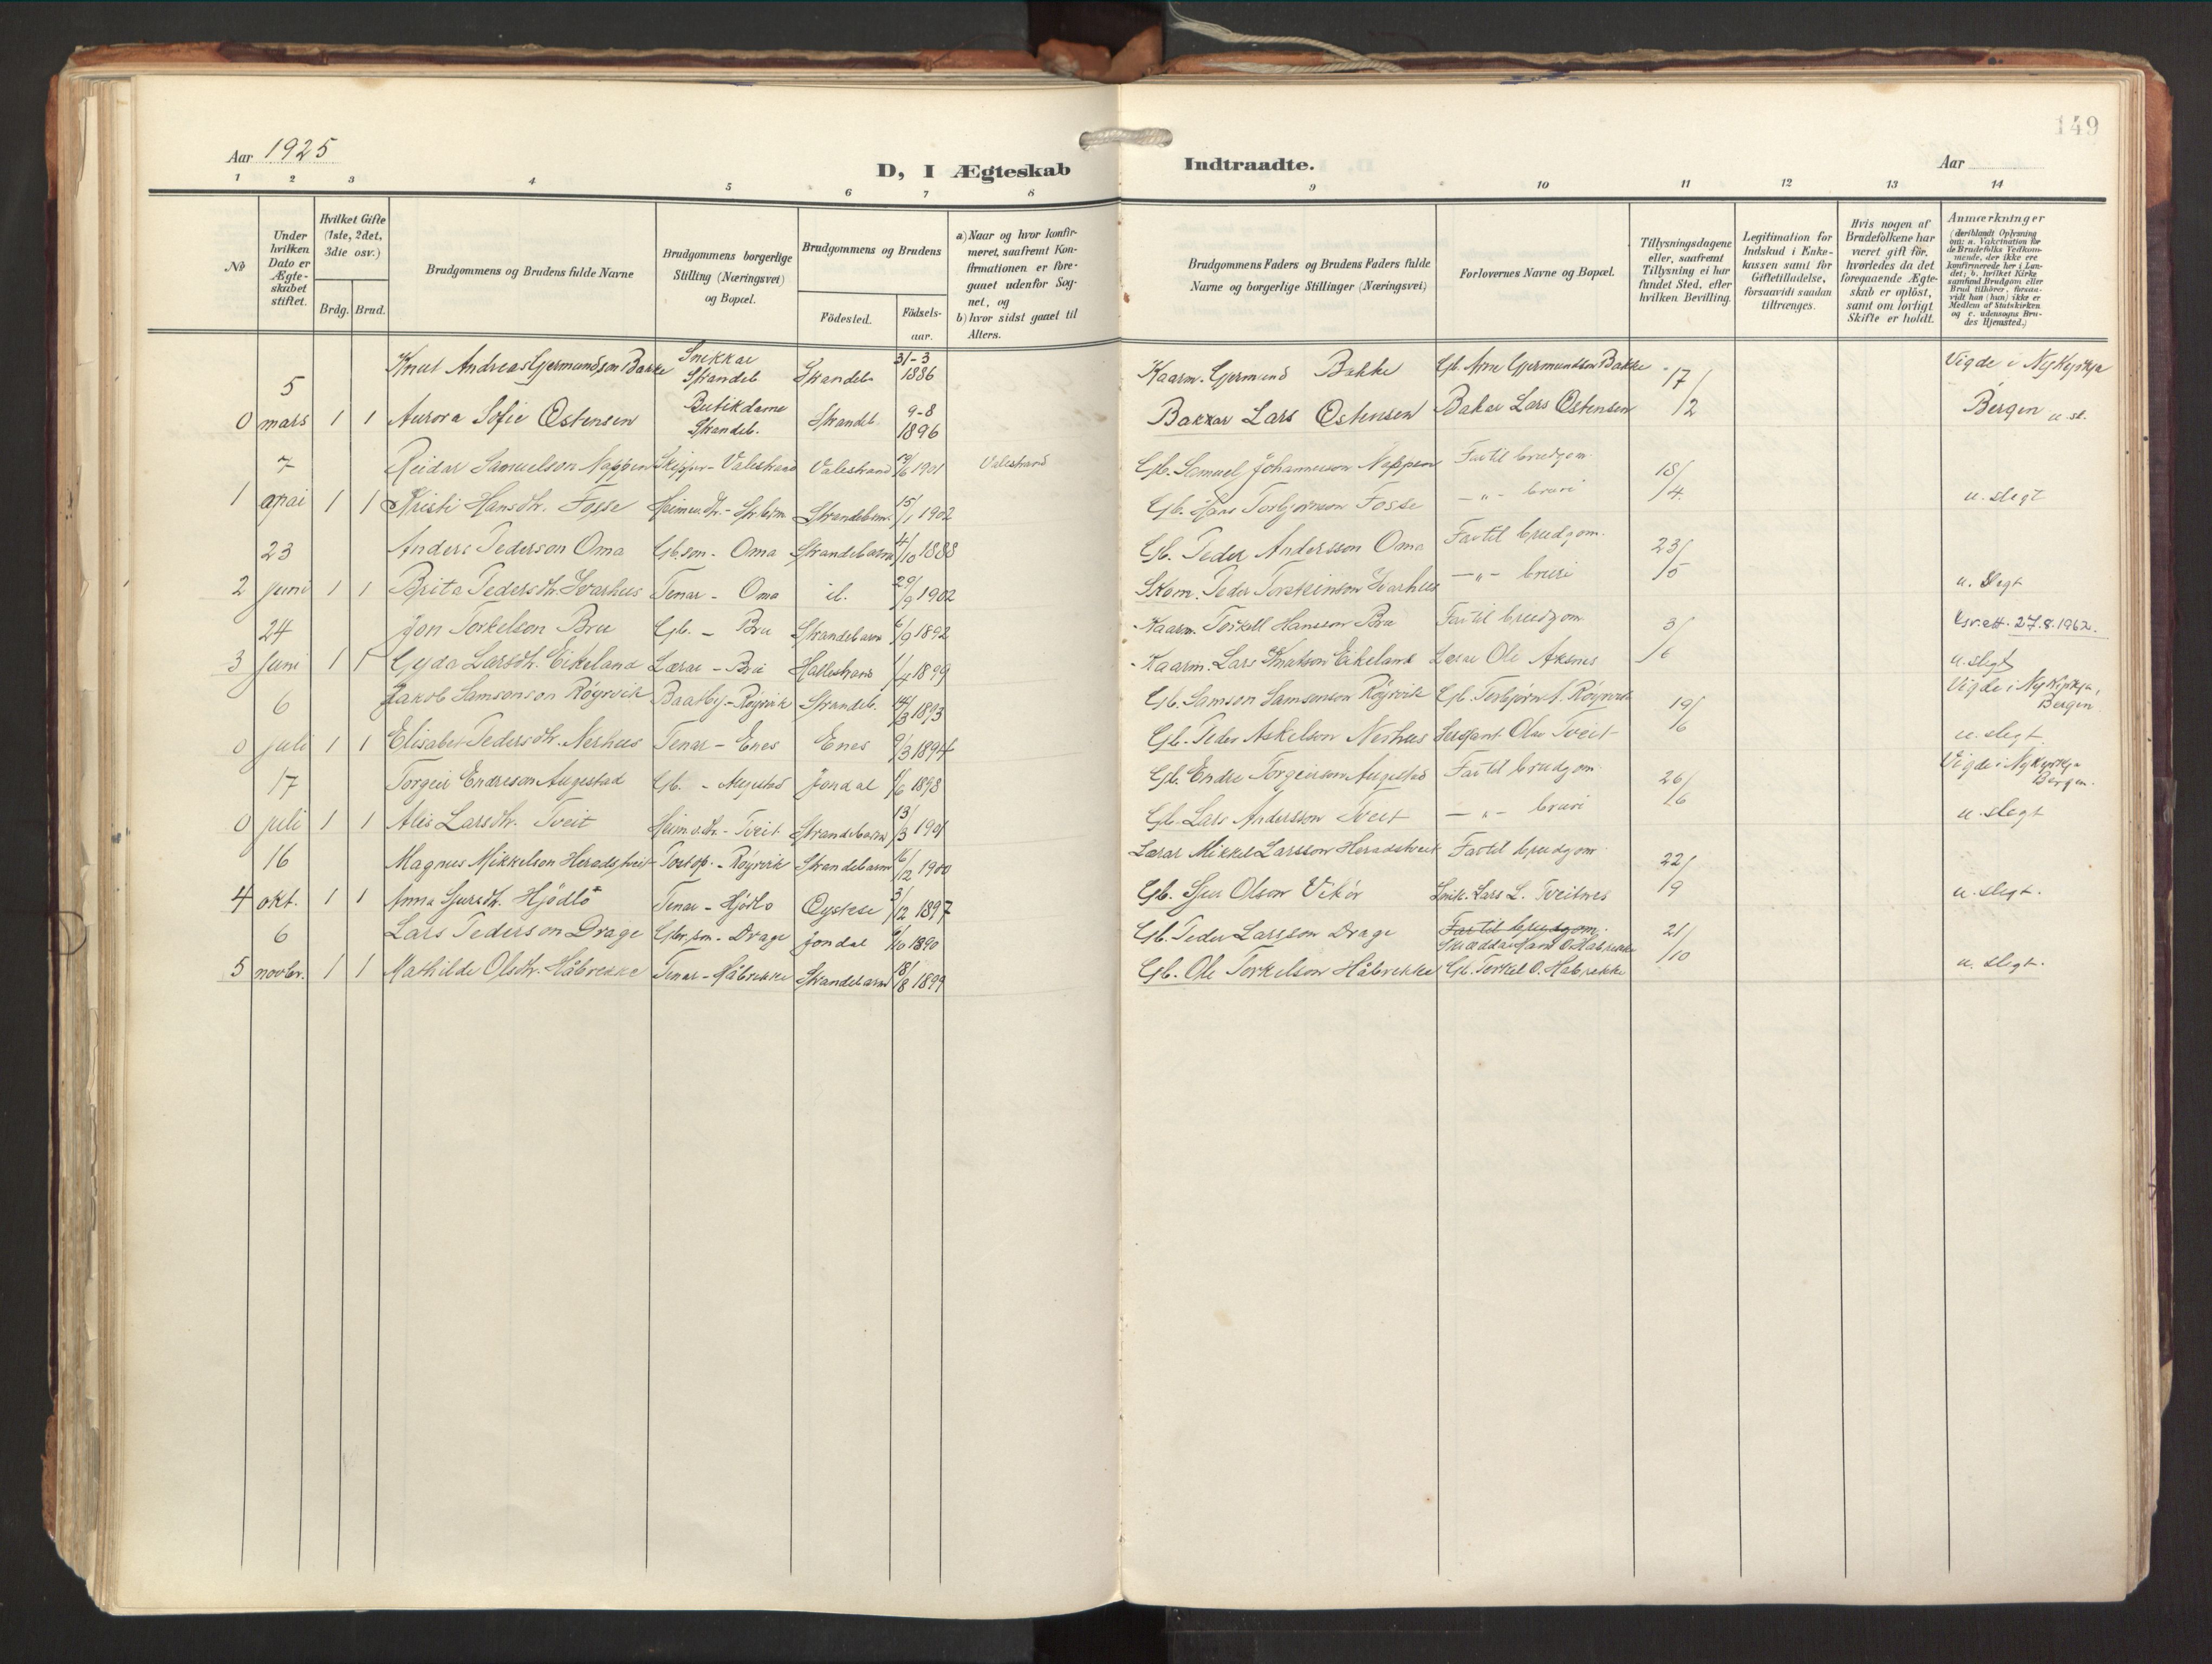 149
Aar 1925
D, I Ægteskab Indtraadte.
Aar
1 2 3 4 5 6 7 8 9 10 11 12 13 14
No
Under hvilken Dato er Ægte-skabet stiftet.
Hvilket Gifte (1ste, 2det, 3die osv.)
Brdg. Brud.
Brudgommens og Brudens fulde Navne
Brudgommens borgerlige Stilling (Næringsvei) og Bopæl.
Brudgommens og Brudens
Födested.
Födsels-aar.
a) Naar og hvor konfir-meret, saafremt Kon-firmationen er fore-gaaet udenfor Sog-net, og
b) hvor sidst gaaet til Alters.
Brudgommens Faders og Brudens Faders fulde Navne og borgerlige Stillinger (Næringsvei)
Forlovernes Navne og Bopæl.
Tillysningsdagene eller, saafremt Tillysning ei har fundet Sted, efter hvilken Bevilling.
Legitimation for Indskud i Enke-kassen samt for Giftetilladelse, forsaavidt saadan tiltrænges.
Hvis nogen af Brudefolkene har været gift för, hvorledes da det foregaaende Ægte-skab er oplöst, samt om lovligt Skifte er holdt.
Anmærkninger
(deriblandt Oplysning om: a. Vakcination for de Brudefolks Vedkom-mende, der ikke ere konfirmerede her i Lan-det; b. hvilket Kirke-samfund Brudgom eller Brud tilhörer, forsaa-vidt han (hun) ikke er Medlem af Statskirken og c. udensogns Bru-des Hjemsted.)
5 Knut Andreas Gjermundson Bakke Snekkar Strandeb. Strandeb. 31-3 1886 Kaarm. Gjermund Bakke Gb. Arne Gjermundson Bakke 17/2 Vigde i Nykyrkja
0 mars 1 1 Aurora Sofie Østensen Butikdame Strandeb. Strandeb. 9-8 1896 Bakar Lars Østensen Bakar Lars Østensen Bergen u. sl.
7 Reidar Samuelson Nappen Skipper - Valestrand Valestrand 19/6 1901 Valestrand Gb. Samuel Johannesson Nappen Far til brudgom. 18/4
1 mai 1 1 Kristi Hansdtr. Fosse Heimendtr. - Str.barm Strandebarm 15/1 1902 Gb. Hans Torbjørnson Fosse - " - bruri u. slegt
23 Anders Pederson Oma Gb.son - Oma Strandebarm 4/10 1888 Gb. Peder Andersson Oma Far til brudgom. 23/5
2 juni 1 1 Brita Pedersdtr. Svarhus Tenar - Oma il. 29/9 1902 Skom. Peder Torsteinson Svarhus - " - bruri u. slegt
24 Jon Torkelson Bru Gb. - Bru Strandebarm 6/9 1892 Kaarm. Torkell Hansson Bru Far til brudgom 3/6 27.8.1962.
3 juni 1 1 Gyda Larsdtr. Eikeland Lærar - Bru Hatlestrand 1/4 1899 Kaarm. Lars Knutson Eikeland Lærar Ole Aksnes u. slegt
6 Jakob Samsonson Røyrvik Baatbyg. - Røyrvik Strandeb. 14/3 1893 Gb. Samson Samsonson Røyrvik Gb. Torbjørn S. Røyrvik 19/6 Vigde i Nykyrkja, Bergen.
0 juli 1 1 Elisabet Pedersdtr. Nerhus Tenar - Enes Enes 9/3 1894 Gb. Peder Askelson Nerhus Sergant Olav Tveit u. slegt
17 Torgeir Endreson Augestad Gb. - Augestad Jondal 11/6 1898 Gb. Endre Torgeirson Augestad Far til brudgom. 26/6 Vigde i Nykyrkja Bergen.
0 juli 1 1 Alis Larsdtr. Tveit Heim.v.dtr. - Tveit Strandebarm 13/3 1901 Gb. Lars Andersson Tveit - " - bruri u. slegt
16 Magnus Mikkelson Heradstveit - Røyrvik Strandebarm 16/12 1900 Lærar Mikkel Larsson Heradstveit Far til brudgom 22/9
4 okt. 1 1 Anna Sjursdtr. Hjødlo Tenar - Hjødlo Øystese 3/12 1897 Gb. Sjur Olson Vikør Snik. Lars L. Tveitnes u. slegt.
6 Lars Pederson Drage Gbr.son - Drage Jondal 6/10 1890 Gb. Peder Larsson Drage Far til brudgom. Skræddar Hans O. Håbrekke 21/10
5 novbr. 1 1 Mathilde Olsdtr. Håbrekke Tenar - Håbrekke Strandebarm 18/8 1899 Gb. Ole Torkelson Håbrekke Gb. Torkel O. Håbrekke u. slegt.